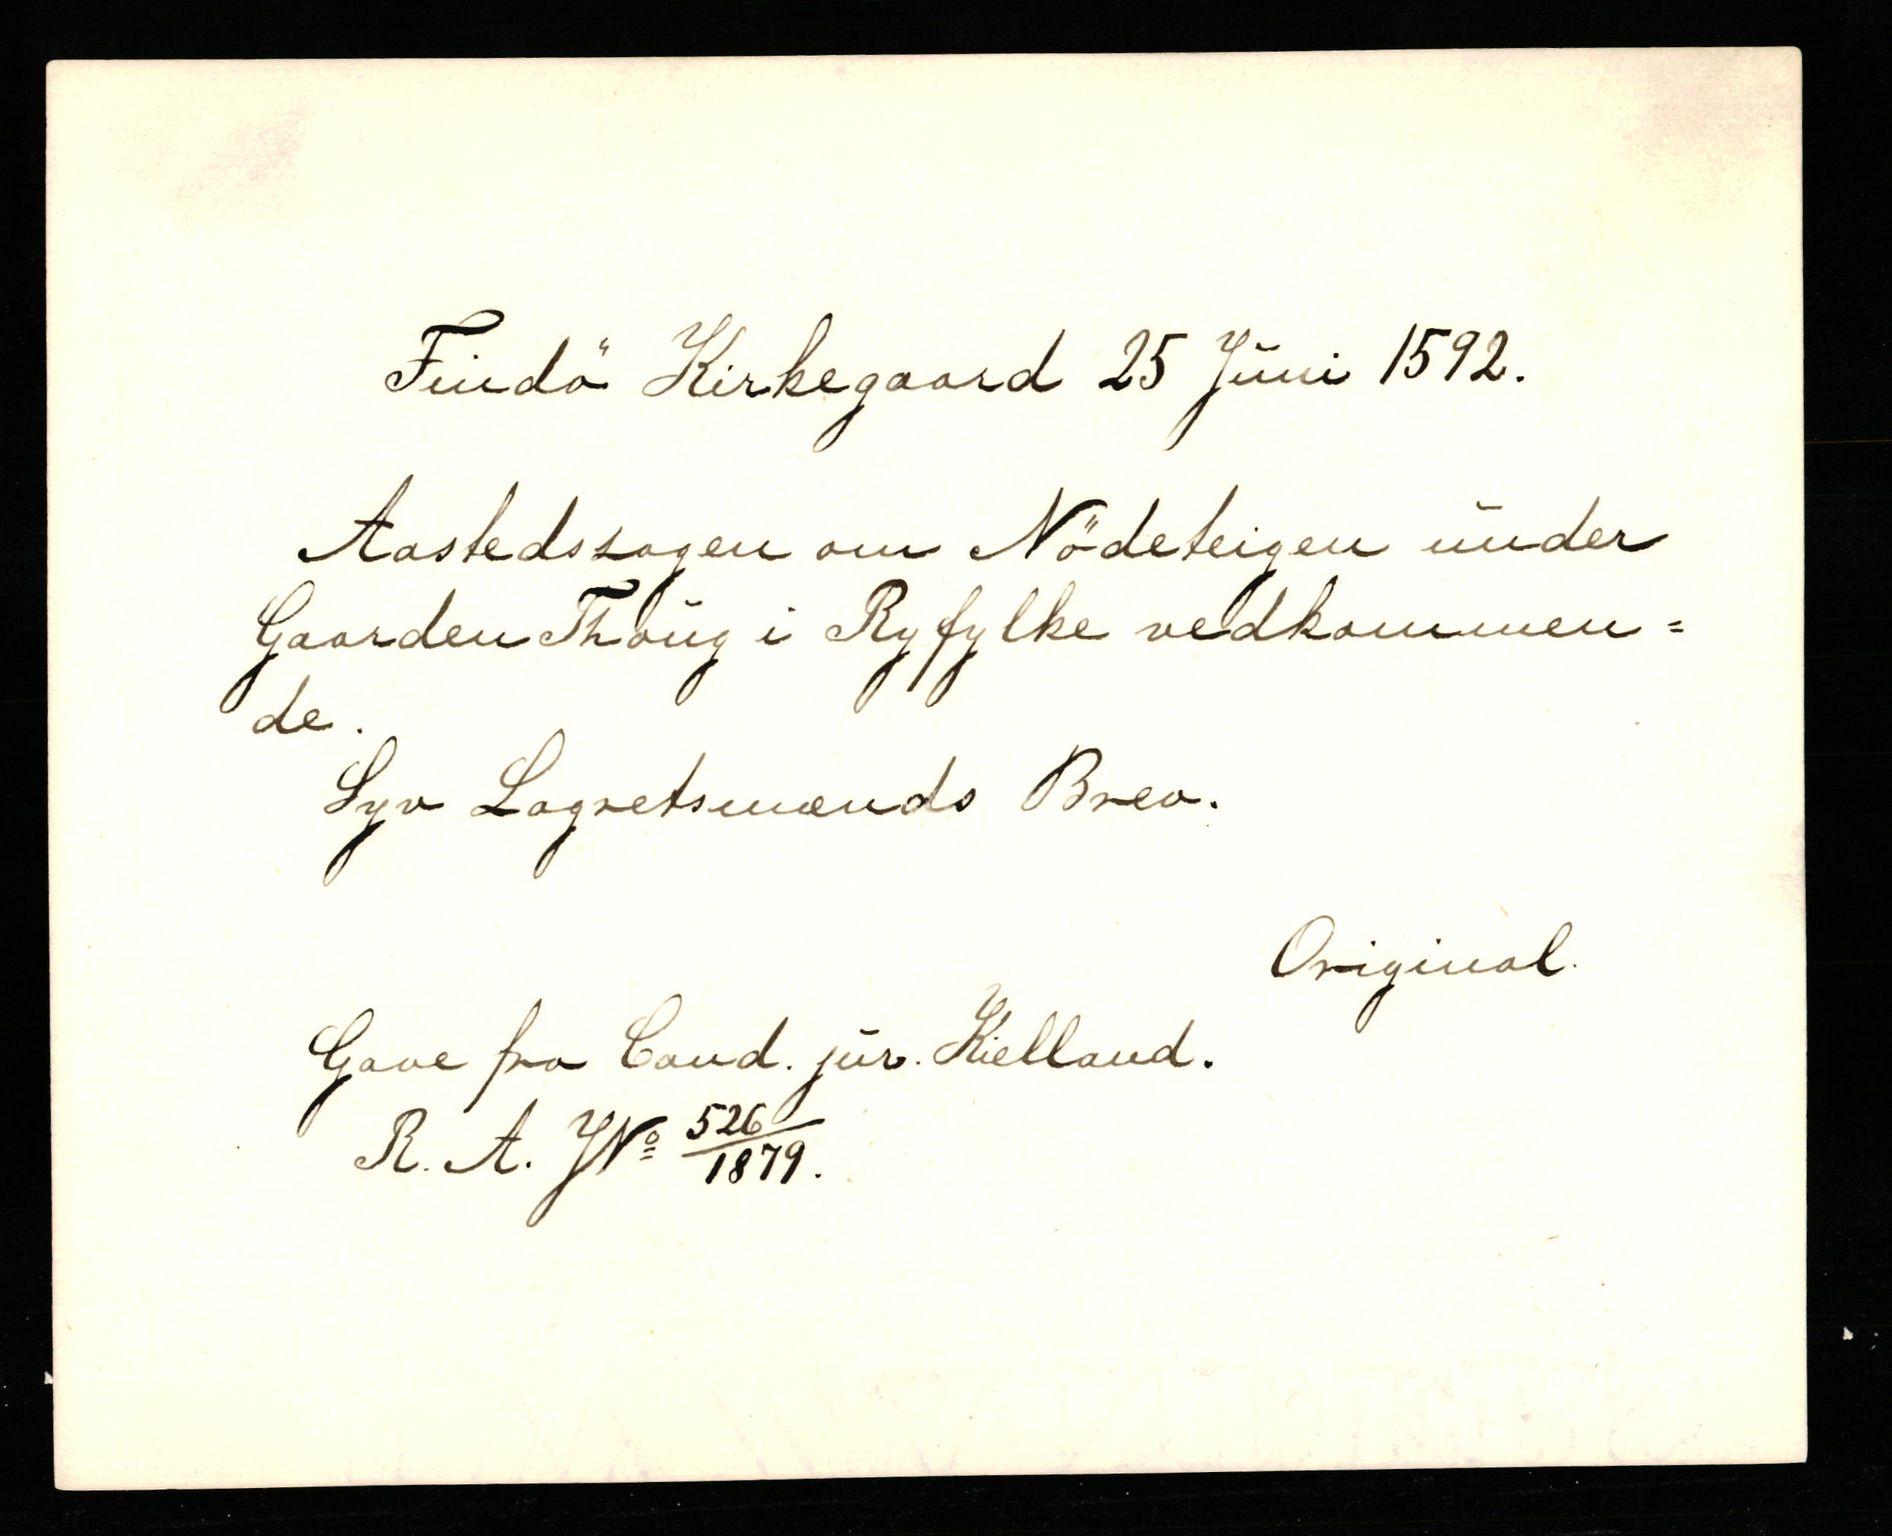 Findö Kirkegaard 25 Juni 1592.
Aastedssagen om Nödeteigen under
Gaarden Thoug i Ryfylke vedkommen=
de.
Syv Lagretsmænds Brev.
Original.
Gave fra Cand. jur. Kielland.
R. A. JNº 526/1879.